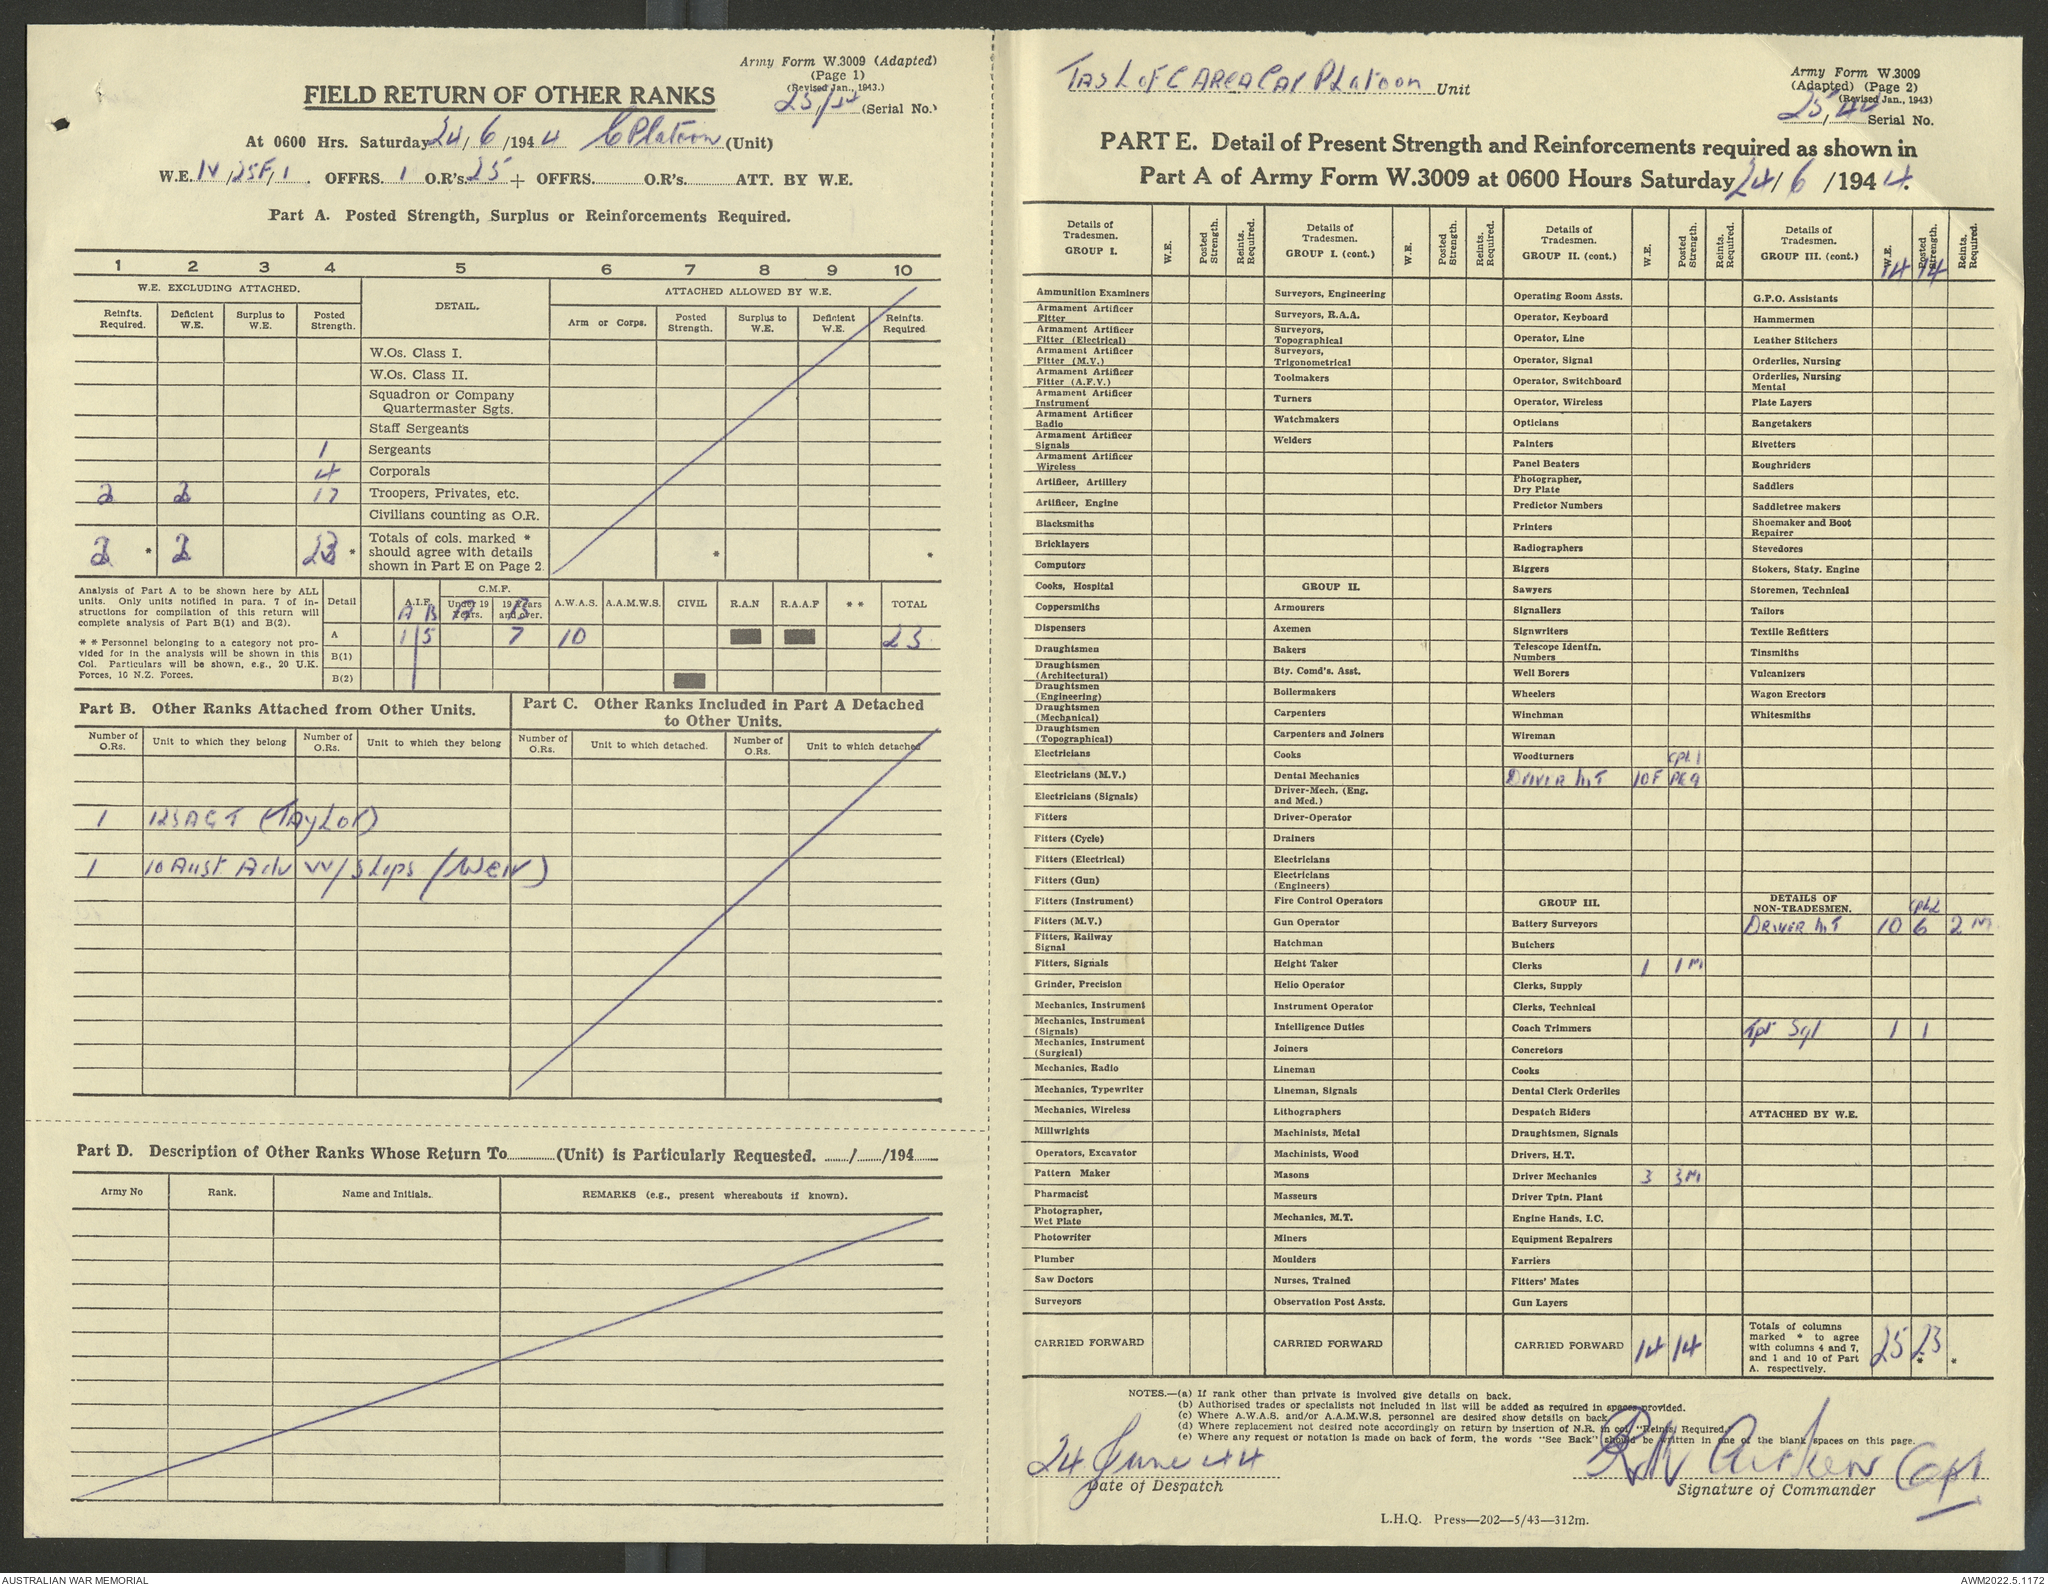 Army Form W.3009 (Adapted)
(Page 1)
(Revised Jan., 1943.)
25/44 (Serial No.)
FIELD RETURN OF OTHER RANKS
At 0600 Hrs. Saturday 24/6/1944 C Platoon (Unit)
W.E. IV/25F/1. OFFRS. 1 O.R's. 25 + OFFRS.......... O.R's.......... ATT. BY W.E.
Part A. Posted Strength, Surplus or Reinforcements Required.
1 2 3 4 5 6 7 8 9 10
W.E. EXCLUDING ATTACHED. DETAIL. ATTACHED ALLOWED BY W.E.
Reinfts. Required. Deficient W.E. Surplus to W.E. Posted Strength. Arm or Corps. Posted Strength. Surplus to W.E. Deficient W.E. Reinfts. Required
W.Os. Class I.
W.Os. Class II.
Squadron or Company
Quartermaster Sgts.
Staff Sergeants
1 Sergeants
4 Corporals
2 2 17 Troopers, Privates, etc.
Civilians counting as O.R.
2 * 2 23 * Totals of cols. marked * should agree with details shown in Part E on Page 2. * *
Analysis of Part A to be shown here by ALL
units. Only units notified in para. 7 of in-
structions for compilation of this return will
complete analysis of Part B(1) and B(2).
** Personnel belonging to a category not pro-
vided for in the analysis will be shown in this
Col. Particulars will be shown, e.g., 20 U.K.
Forces, 10 N.Z. Forces.
Detail A.I.F. C.M.F. A.W.A.S. A.A.M.W.S. CIVIL R.A.N R.A.A.F ** TOTAL
A B Under 19 Years. 19 Years and over. B
A 1 5 7 10 23
B(1)
B(2)
Part B. Other Ranks Attached from Other Units.
Number of O.Rs. Unit to which they belong Number of O.Rs. Unit to which they belong
1 125 AGT (Taylor)
1 10 Aust Adv W/Shops (Weir)
Part C. Other Ranks Included in Part A Detached
to Other Units.
Number of O.Rs. Unit to which detached. Number of O.Rs. Unit to which detached
Part D. Description of Other Ranks Whose Return To.......... (Unit) is Particularly Requested. ....../....../194......
Army No Rank. Name and Initials. REMARKS (e.g., present whereabouts if known).
Tas L of C Area Car Platoon Unit
Army Form W.3009
(Adapted) (Page 2)
(Revised Jan., 1943)
25/44 Serial No.
PART E. Detail of Present Strength and Reinforcements required as shown in
Part A of Army Form W.3009 at 0600 Hours Saturday 24/6/1944.
Details of Tradesmen. GROUP I. W.E. Posted Strength. Reints. Required.
Ammunition Examiners
Armament Artificer Fitter
Armament Artificer Fitter (Electrical)
Armament Artificer Fitter (M.V.)
Armament Artificer Fitter (A.F.V.)
Armament Artificer Instrument
Armament Artificer Radio
Armament Artificer Signals
Armament Artificer Wireless
Artificer, Artillery
Artificer, Engine
Blacksmiths
Bricklayers
Computors
Cooks, Hospital
Coppersmiths
Dispensers
Draughtsmen
Draughtsmen (Architectural)
Draughtsmen (Engineering)
Draughtsmen (Mechanical)
Draughtsmen (Topographical)
Electricians
Electricians (M.V.)
Electricians (Signals)
Fitters
Fitters (Cycle)
Fitters (Electrical)
Fitters (Gun)
Fitters (Instrument)
Fitters (M.V.)
Fitters, Railway Signal
Fitters, Signals
Grinder, Precision
Mechanics, Instrument
Mechanics, Instrument (Signals)
Mechanics, Instrument (Surgical)
Mechanics, Radio
Mechanics, Typewriter
Mechanics, Wireless
Millwrights
Operators, Excavator
Pattern Maker
Pharmacist
Photographer, Wet Plate
Photowriter
Plumber
Saw Doctors
Surveyors
CARRIED FORWARD
Details of Tradesmen. GROUP I. (cont.) W.E. Posted Strength. Reints. Required.
Surveyors, Engineering
Surveyors, R.A.A.
Surveyors, Topographical
Surveyors, Trigonometrical
Toolmakers
Turners
Watchmakers
Welders
GROUP II.
Armourers
Axemen
Bakers
Bty. Comd's. Asst.
Boilermakers
Carpenters
Carpenters and Joiners
Cooks
Dental Mechanics
Driver-Mech. (Eng. and Med.)
Driver-Operator
Drainers
Electricians
Electricians (Engineers)
Fire Control Operators
Gun Operator
Hatchman
Height Taker
Helio Operator
Instrument Operator
Intelligence Duties
Joiners
Lineman
Lineman, Signals
Lithographers
Machinists, Metal
Machinists, Wood
Masons
Masseurs
Mechanics, M.T.
Miners
Moulders
Nurses, Trained
Observation Post Assts.
CARRIED FORWARD
Details of Tradesmen. GROUP II. (cont.) W.E. Posted Strength. Reints. Required.
Operating Room Assts.
Operator, Keyboard
Operator, Line
Operator, Signal
Operator, Switchboard
Operator, Wireless
Opticians
Painters
Panel Beaters
Photographer, Dry Plate
Predictor Numbers
Printers
Radiographers
Riggers
Sawyers
Signallers
Signwriters
Telescope Identfn. Numbers
Well Borers
Wheelers
Winchman
Wireman
Woodturners Cpl 1
DRIVER M T 10F Pte 9
GROUP III.
Battery Surveyors
Butchers
Clerks 1 1 M
Clerks, Supply
Clerks, Technical
Coach Trimmers
Concretors
Cooks
Dental Clerk Orderlies
Despatch Riders
Draughtsmen, Signals
Drivers, H.T.
Driver Mechanics 3 3M
Driver Tptn. Plant
Engine Hands, I.C.
Equipment Repairers
Farriers
Fitters' Mates
Gun Layers
CARRIED FORWARD 14 14
Details of Tradesmen. GROUP III. (cont.) W.E. Posted Strength. Reints. Required.
14 14
G.P.O. Assistants
Hammermen
Leather Stitchers
Orderlies, Nursing
Orderlies, Nursing Mental
Plate Layers
Rangetakers
Rivetters
Roughriders
Saddlers
Saddletree makers
Shoemaker and Boot Repairer
Stevedores
Stokers, Staty. Engine
Storemen, Technical
Tailors
Textile Refitters
Tinsmiths
Vulcanizers
Wagon Erectors
Whitesmiths
DETAILS OF NON-TRADESMEN. Cpl 2
DRIVER M T 10 6 2 M
Tpt Sgt 1 1
ATTACHED BY W.E.
Totals of columns marked * to agree with columns 4 and 7, and 1 and 10 of Part A. respectively. 25 23 * *
NOTES.—(a) If rank other than private is involved give details on back.
(b) Authorised trades or specialists not included in list will be added as required in spaces provided.
(c) Where A.W.A.S. and/or A.A.M.W.S. personnel are desired show details on back.
(d) Where replacement not desired note accordingly on return by insertion of N.R. in col. "Reints. Required."
(e) Where any request or notation is made on back of form, the words "See Back" should be written in one of the blank spaces on this page.
24 June 44
Date of Despatch
Capt
Signature of Commander
L.H.Q. Press—202—5/43—312m.
AUSTRALIAN WAR MEMORIAL
AWM2022.5.1172